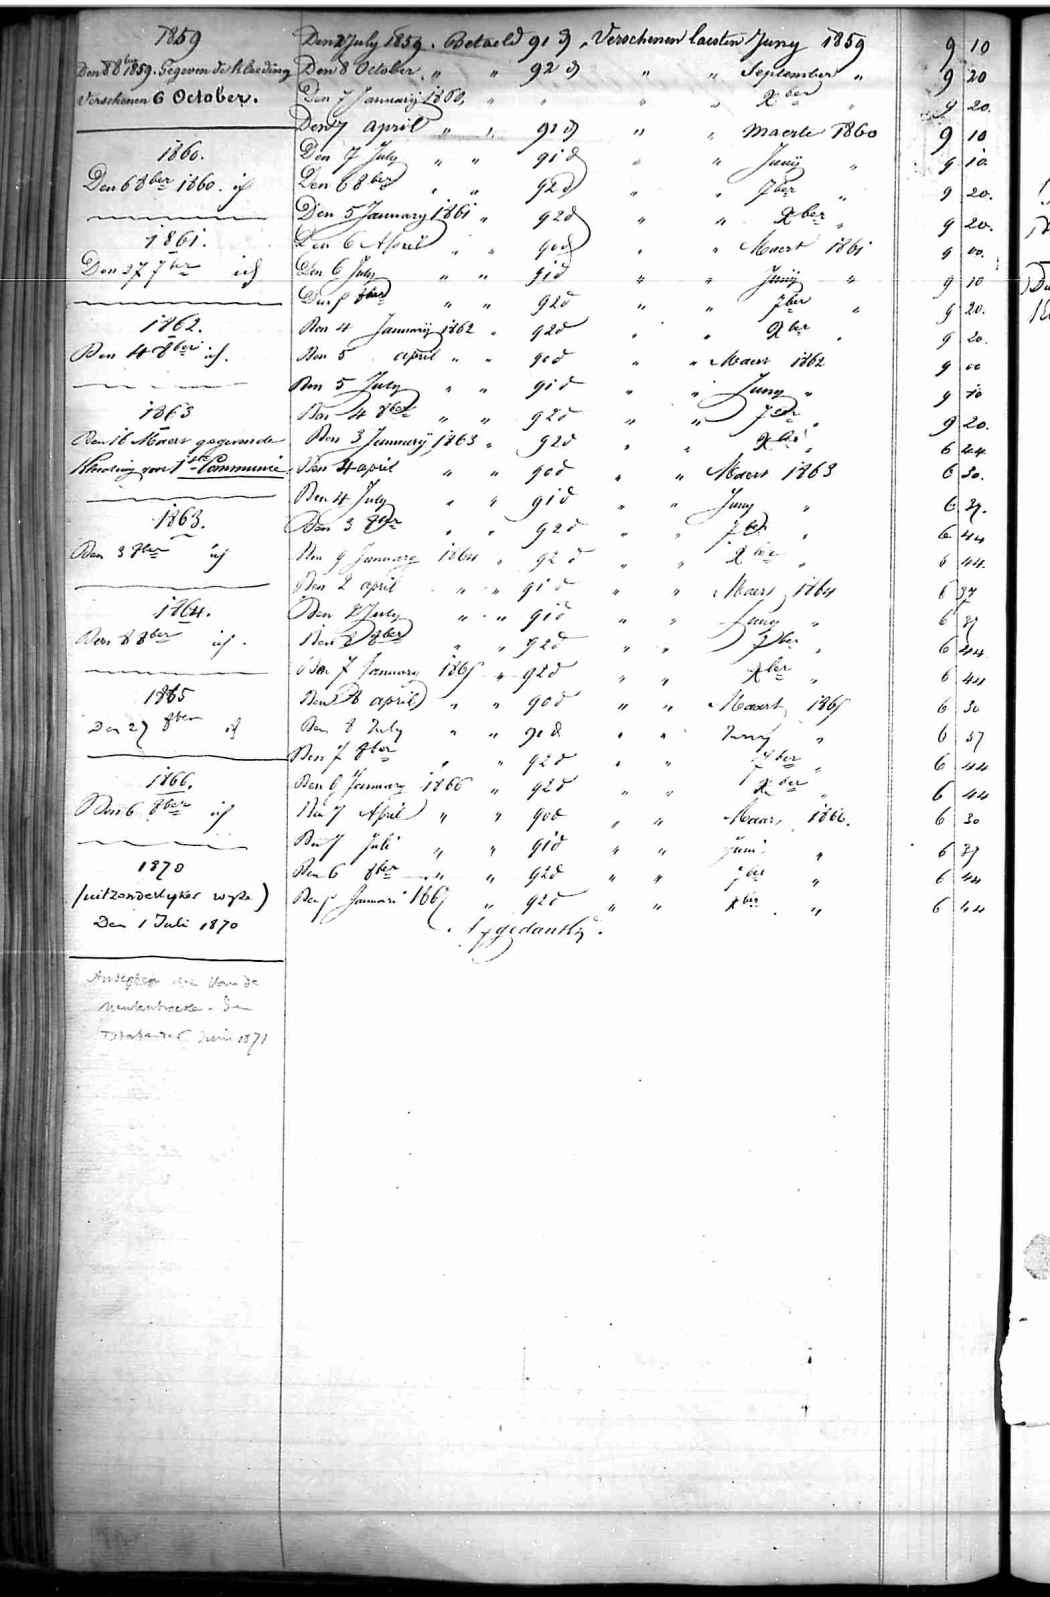 1859
Den 8 8ber 1859. Gegeven de Kleeding
Verschenen 6 October.
1860.
Den 6 8ber 1860. id
1861.
Den 27 7ber id
1862.
Den 4 8ber id.
1863
Den 16 Maert gegevende
Kleeding voor 1ste Communie
1863.
Den 3 8ber id
1864.
Den 8 8ber id.
1865
Den 27 8ber id
1866.
Den 6 8ber id
1870
(uitzonderlyker wyze)
Den 1 Juli 1870
Juni 1871
Den 2 July 1859. Betaeld 91 d, Verschenen laesten Juny 1859 9 10
Den 8 October " " 92 d " " September " 9 20
Den 7 Januarij 1860, " " " " Xber " 9 20.
Den 7 april " " 91 d " " Maerte 1860 9 10
Den 7 July " " 91 d " " Junij " 9 10
Den 6 8ber " " 92 d " " 7ber " 9 20.
Den 5 January 1861 " 92 d " " Xber " 9 20.
Den 6 April " " 90 d " " Maert 1861 9 00.
Den 6 July " " 91 d " " Junij " 9 10
Den 5 8ber " " 92 d " " 7ber " 9 20.
Den 4 Januarij 1862 " 92 d " " Xber " 9 20.
Den 5 april " " 90 d " " Maert 1862 9 00
Den 5 July " " 91 d " " Juny " 9 10
Den 4 8ber " " 92 d " " 7ber " 9 20.
Den 3 Januarij 1863 " 92 d " " Xber " 6 44
Den 4 april " " 90 d " " Maert 1863 6 30.
Den 4 July " " 91 d " " Juny " 6 37.
Den 3 8ber " " 92 d " " 7ber " 6 44
Den 9 January 1864 " 92 d " " Xber " 6 44
Den 2 april " " 91 d " " Maert 1864 6 37
Den 2 July " " 91 d " " Juny " 6 37
Den 8 8ber " " 92 d " " 7ber " 6 44
Den 7 January 1865 " 92 d " " Xber " 6 44
Den 8 april " " 90 d " " Maert 1865 6 30
Den 8 July " " 91 d " " Juny " 6 37
Den 7 8ber " " 92 d " " 7ber " 6 44
Den 6 January 1866 " 92 d " " Xber " 6 44
Den 7 April " " 90 d " " Maart 1866. 6 30
Den 7 Juli " " 91 d " " Juni " 6 37
Den 6 8ber " " 92 d " " 7ber " 6 44
Den 5 Januari 1867 " 92 d " " Xber " 6 44